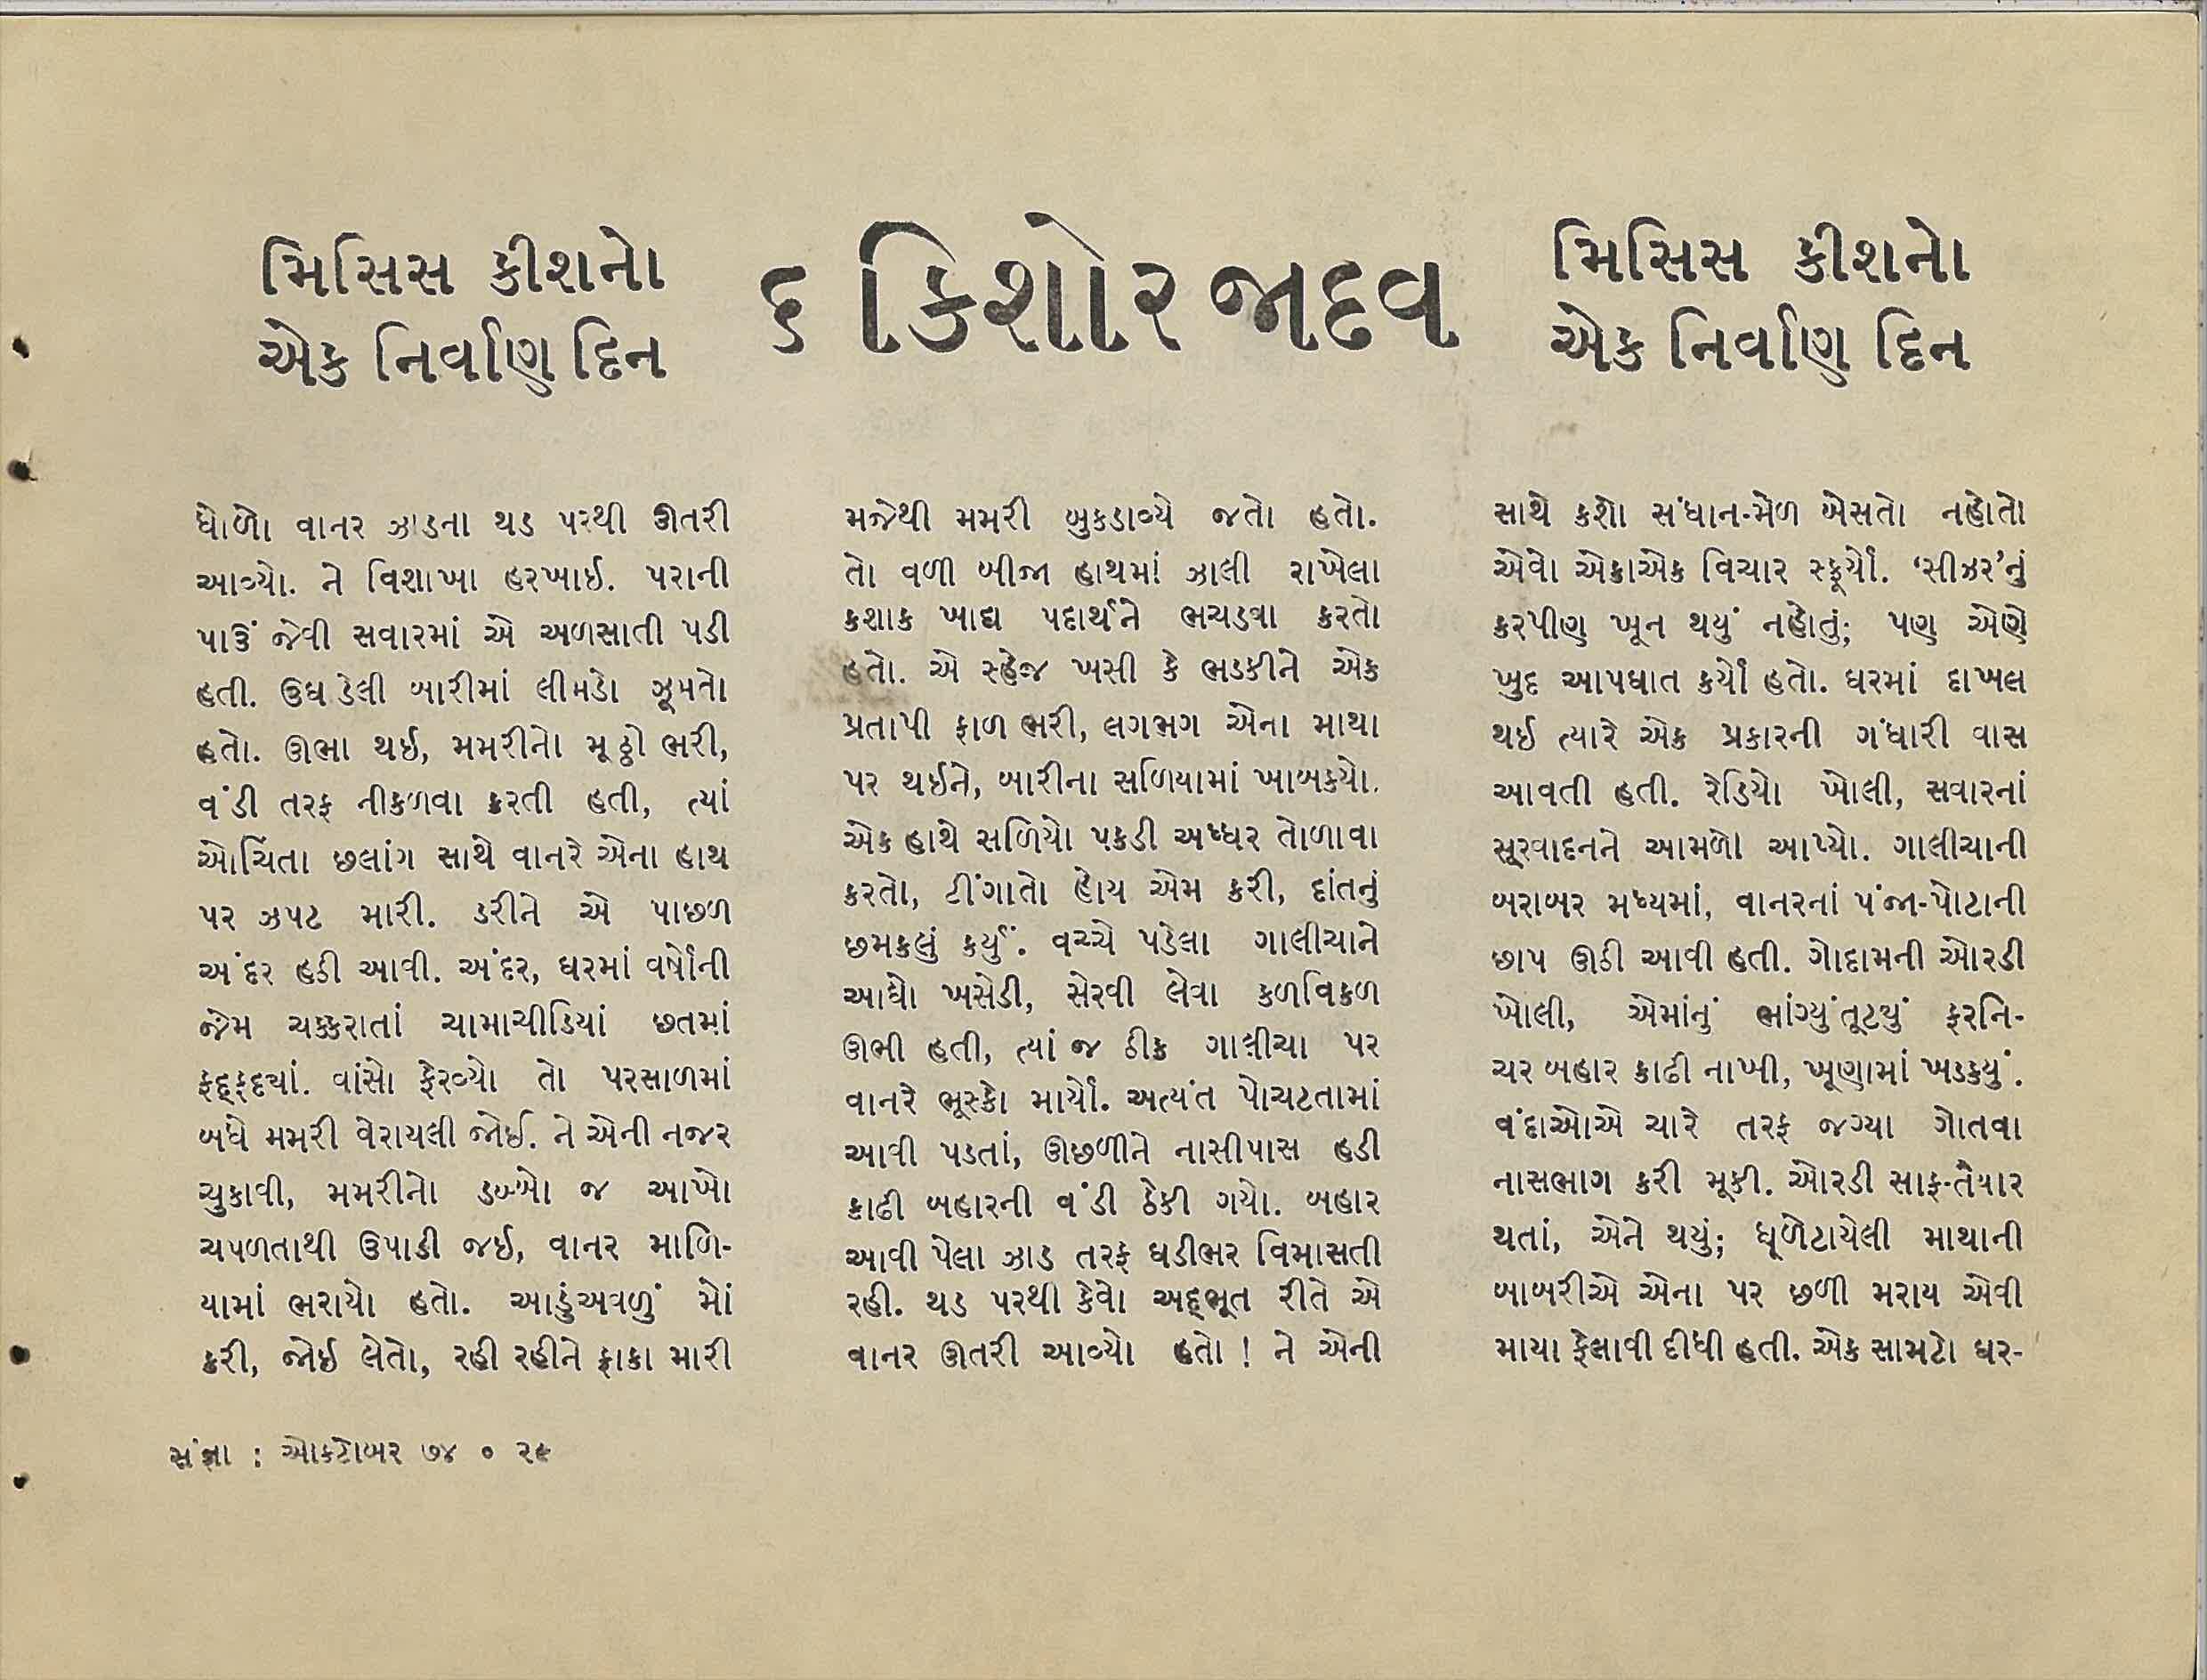 મિસિસ કીશનો
એક નિર્વાણ દિન
૬ કિશોર જાદવ
મિસિસ કીશનો
એક નિર્વાણ દિન
ધોળો વાનર ઝાડના થડ પરથી ઊતરી
આવ્યો. ને વિશાખા હરખાઈ. પરાની
પાઉં જેવી સવારમાં એ અળસાતી પડી
હતી. ઉઘડેલી બારીમાં લીમડો ઝૂમતો
હતો. ઊભા થઈ, મમરીનો મૂઠ્ઠો ભરી,
વંડી તરફ નીકળવા કરતી હતી, ત્યાં
ઓચિંતા છલાંગ સાથે વાનરે એના હાથ
પર ઝપટ મારી. ડરીને એ પાછળ
અંદર હડી આવી. અંદર, ઘરમાં વર્ષોની
જેમ ચક્કરાતાં ચામાચીડિયાં છતમાં
ફદ્ફદ્યાં. વાંસો ફેરવ્યો તો પરસાળમાં
બધે મમરી વેરાયલી જોઈ. ને એની નજર
ચુકાવી, મમરીનો ડબ્બો જ આખો
ચપળતાથી ઉપાડી જઈ, વાનર માળિ-
યામાં ભરાયો હતો. આડુંઅવળું મોં
કરી, જોઈ લેતો, રહી રહીને ફાકા મારી
મજેથી મમરી બુકડાવ્યે જતો હતો.
તો વળી બીજા હાથમાં ઝાલી રાખેલા
કશાક ખાદ્ય પદાર્થને ભચડવા કરતો
હતો. એ સ્હેજ ખસી કે ભડકીને એક
પ્રતાપી ફાળ ભરી, લગભગ એના માથા
પર થઈને, બારીના સળિયામાં ખાબકયો.
એક હાથે સળિયો પકડી અધ્ધર તોળાવા
કરતો, ટીંગાતો હોય એમ કરી, દાંતનું
છમકલું કર્યું. વચ્ચે પડેલા ગાલીચાને
આઘો ખસેડી, સેરવી લેવા કળવિકળ
ઊભી હતી, ત્યાં જ ઠીક ગાલીચા પર
વાનરે ભૂસ્કો માર્યો. અત્યંત પોચટતામાં
આવી પડતાં, ઊછળીને નાસીપાસ હડી
કાઢી બહારની વંડી ઠેકી ગયો. બહાર
આવી પેલા ઝાડ તરફ ઘડીભર વિમાસતી
રહી. થડ પરથી કેવો અદ્ભૂત રીતે એ
વાનર ઊતરી આવ્યો હતો ! ને એની
સાથે કશો સંધાન-મેળ બેસતો નહોતો
એવો એકાએક વિચાર સ્ફૂર્યો. ‘સીઝર’નું
કરપીણ ખૂન થયું નહોતું; પણ એણે
ખુદ આપઘાત કર્યો હતો. ઘરમાં દાખલ
થઈ ત્યારે એક પ્રકારની ગંધારી વાસ
આવતી હતી. રેડિયો ખોલી, સવારનાં
સૂરવાદનને આમળો આપ્યો. ગાલીચાની
બરાબર મધ્યમાં, વાનરનાં પંજા-પોટાની
છાપ ઊઠી આવી હતી. ગોદામની ઓરડી
ખોલી, એમાંનું ભાંગ્યુંતૂટયું ફરનિ-
ચર બહાર કાઢી નાખી, ખૂણામાં ખડકયું.
વંદાઓએ ચારે તરફ જગ્યા ગોતવા
નાસભાગ કરી મૂકી. ઓરડી સાફ-તૈયાર
થતાં, એને થયું; ધૂળેટાયેલી માથાની
બાબરીએ એના પર છળી મરાય એવી
માયા ફેલાવી દીધી હતી. એક સામટો ઘર-
સંજ્ઞા : ઓક્ટોબર ૭૪ ૦ ૨૯